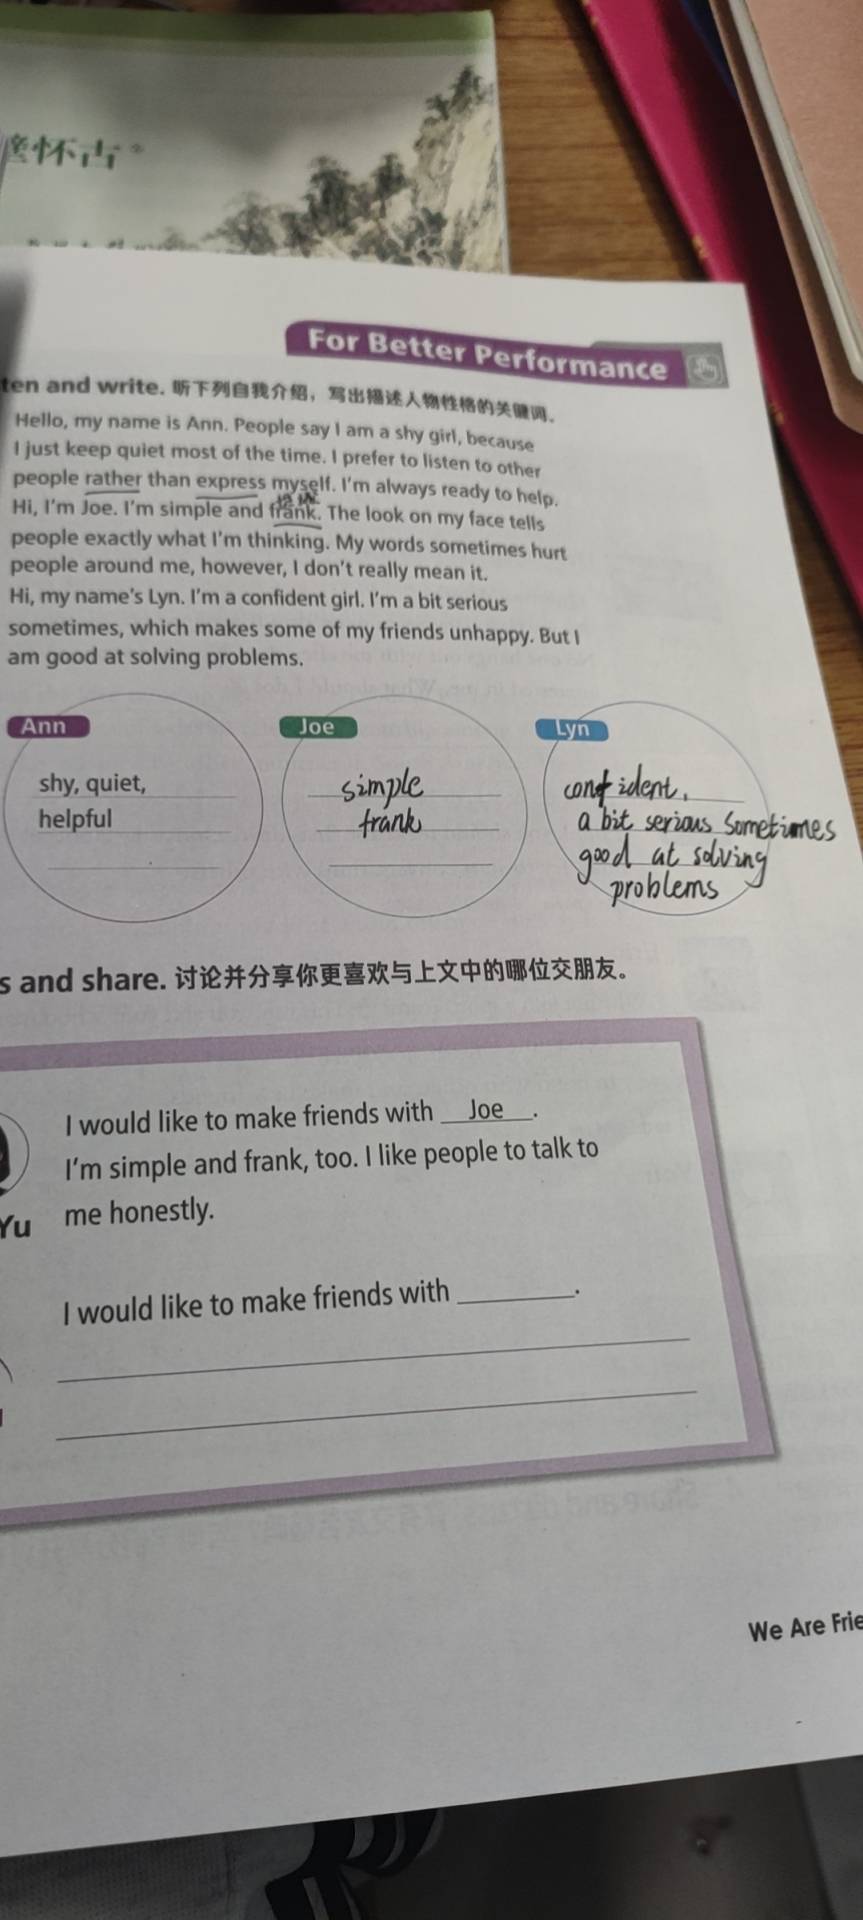 怀古
For Better Performance
ten and write. 听下列自我介绍，写出描述人物性格的关键词。
Hello, my name is Ann. People say I am a shy girl, because
I just keep quiet most of the time. I prefer to listen to other
people rather than express myself. I'm always ready to help.
Hi, I'm Joe. I'm simple and frank. The look on my face tells
people exactly what I'm thinking. My words sometimes hurt
people around me, however, I don't really mean it.
Hi, my name's Lyn. I'm a confident girl. I'm a bit serious
sometimes, which makes some of my friends unhappy. But I
am good at solving problems.
Ann
Joe
Lyn
shy, quiet,
helpful
simple
frank
confident,
a bit serious sometimes
good at solving
problems
s and share. 讨论并分享你更喜欢与上文中的哪位交朋友。
I would like to make friends with Joe.
I'm simple and frank, too. I like people to talk to
me honestly.
Yu
I would like to make friends with ________.
We Are Frie